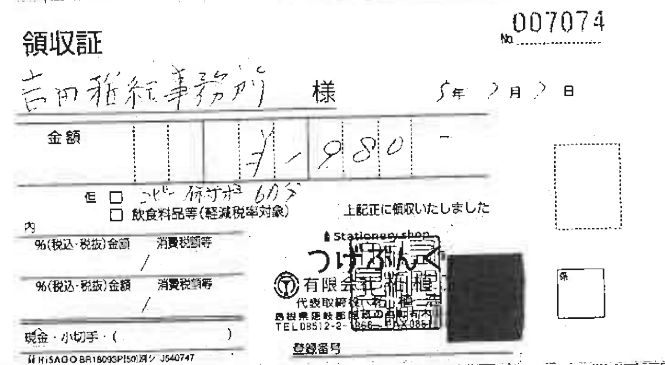 領収証
No. 007074
吉田雅紀事務所 様
5年 7月 7日
金額 ¥1,980-
但 □ コピー 6月分
□ 飲食料品等(軽減税率対象)
上記正に領収いたしました
内
%(税込・税抜)金額 消費税額等
/
%(税込・税抜)金額 消費税額等
/
現金・小切手・( )
Stationery shop
つげぶんぐ
有限会社 柘植
代表取締役 柘植 浩
島根県隠岐郡隠岐の島町有木
TEL08512-2-1066 FAX085
登録番号
HISAGO BR1809SP(50)別シ J540747
係